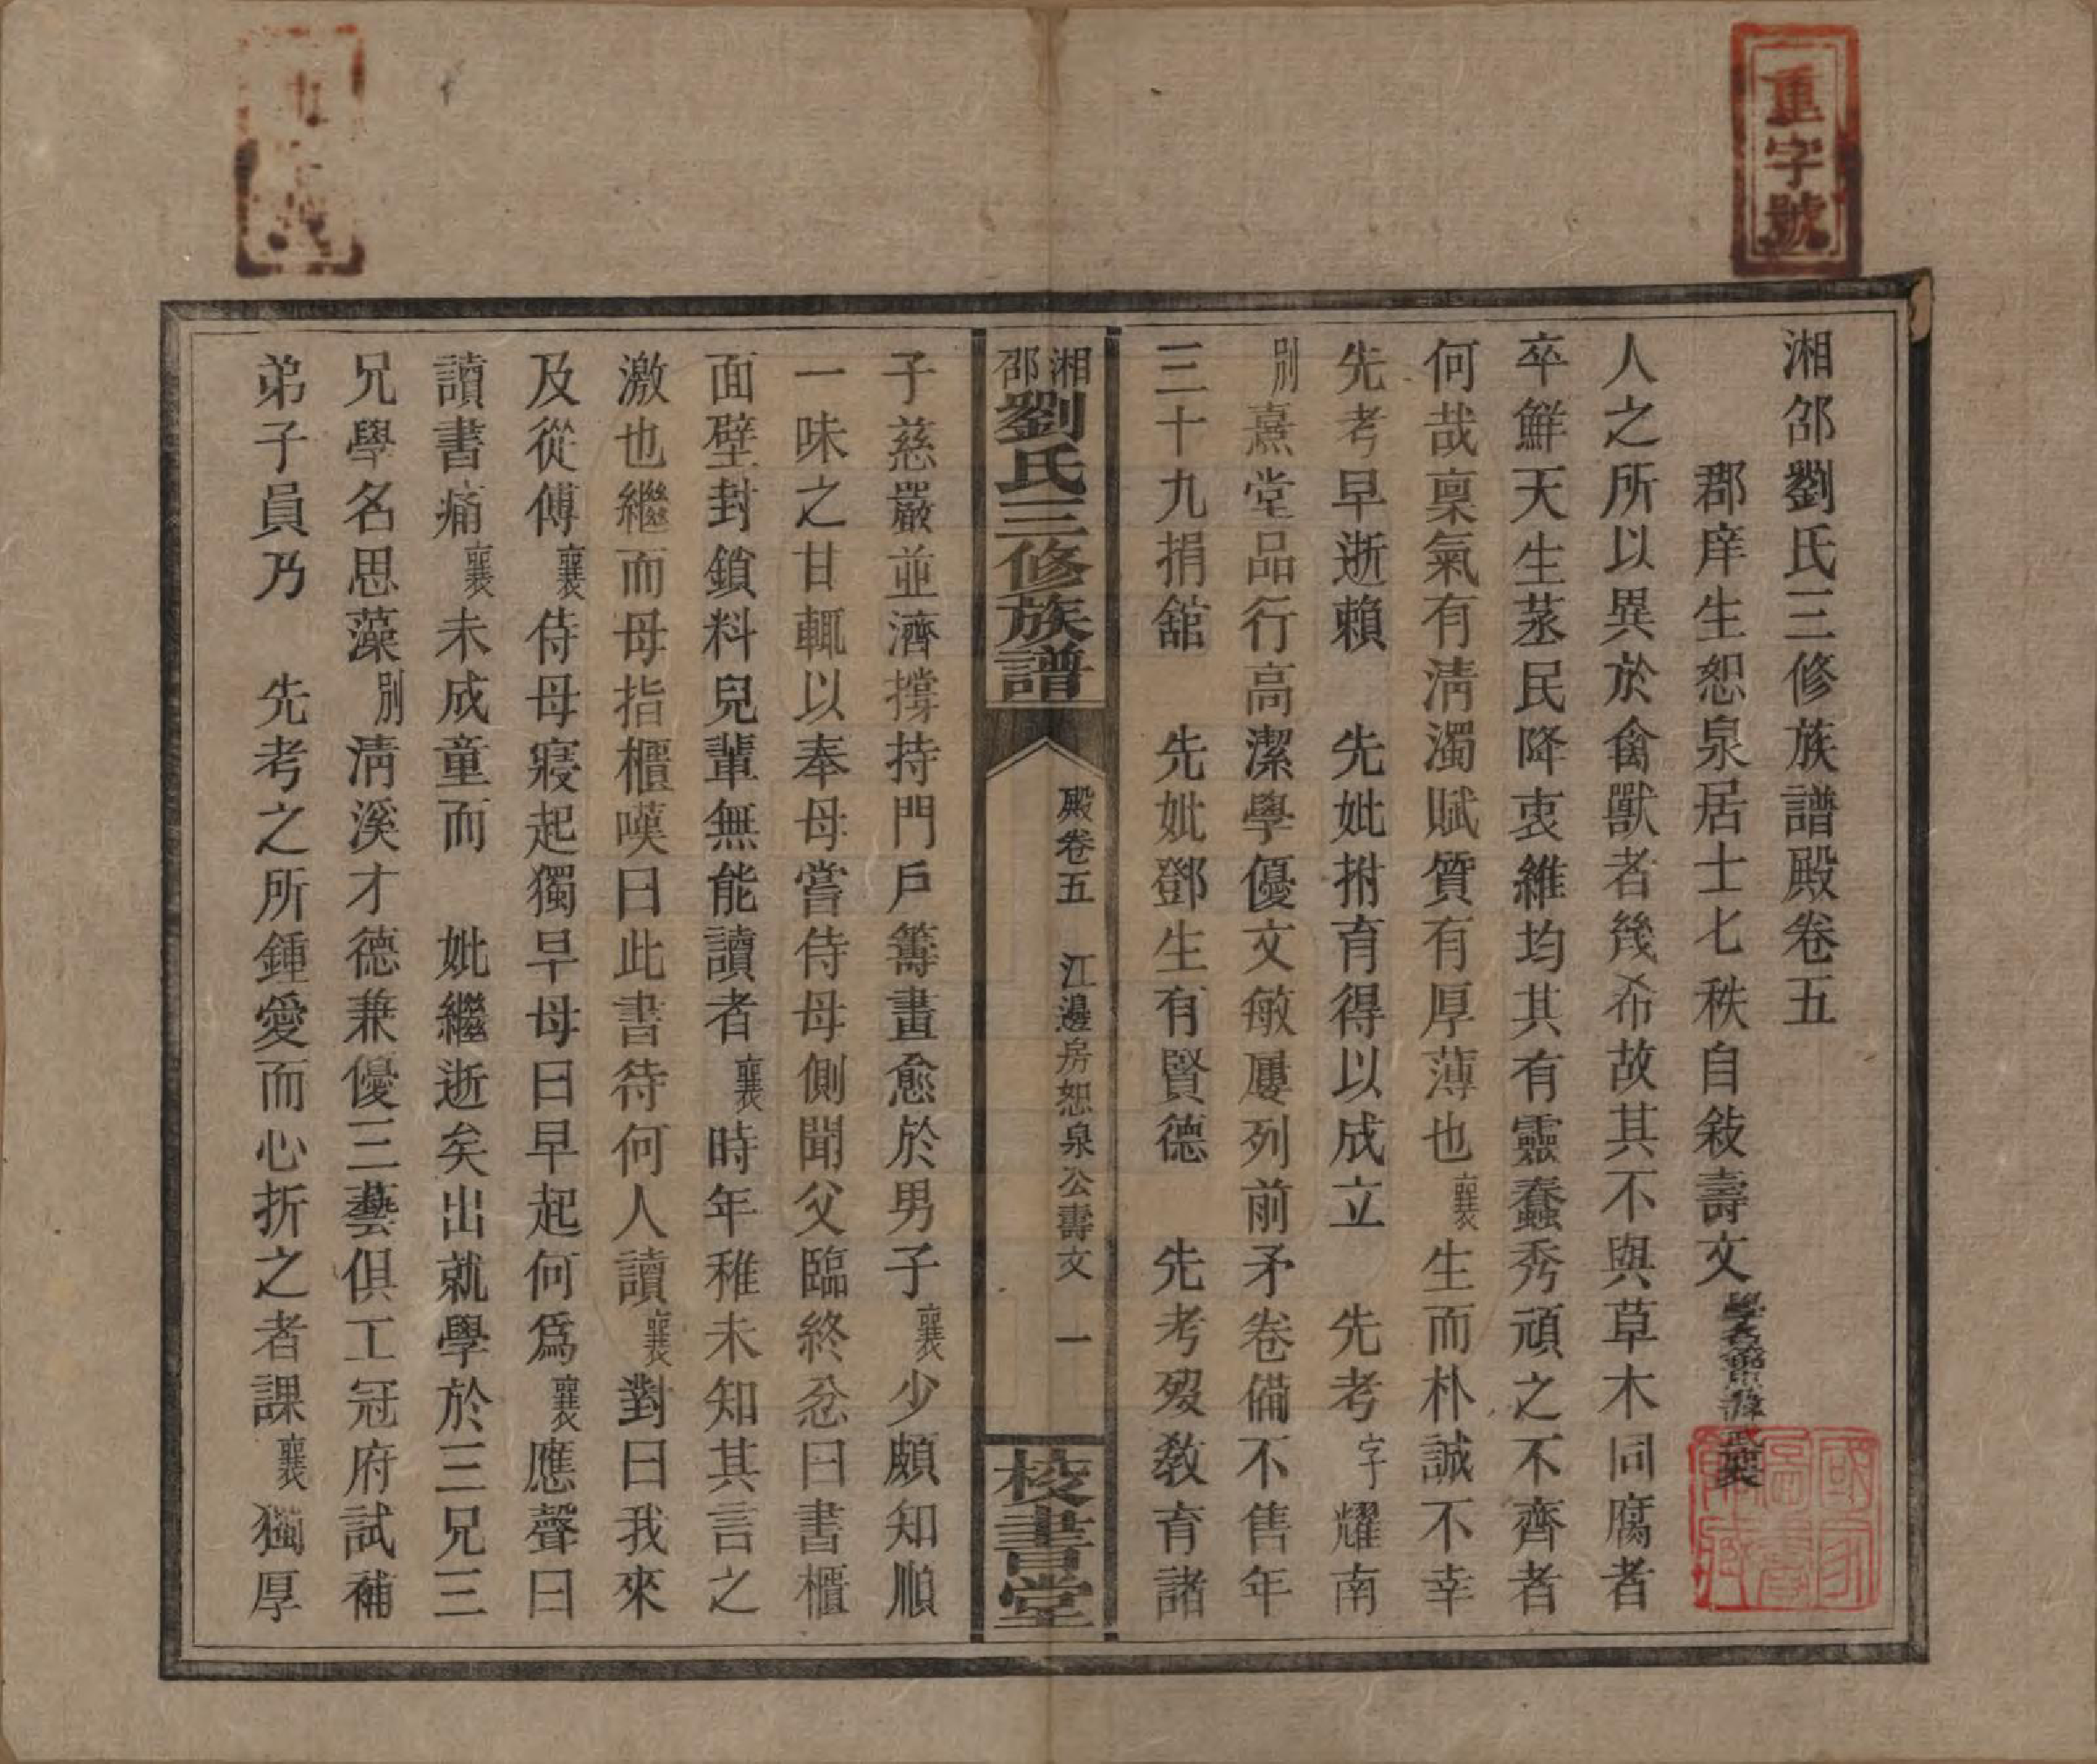 重字號
湘邵劉氏三修族譜殿卷五
郡庠生恕泉居士七秩自敍壽文
人之所以異於禽獸者幾希故其不與草木同腐者
卒鮮天生蒸民降衷維均其有靈蠢秀頑之不齊者
何哉稟氣有清濁賦質有厚薄也襄生而朴誠不幸
先考早逝賴　先妣拊育得以成立　先考字耀南
別熹堂品行高潔學優文敏屢列前矛卷備不售年
三十九捐舘　先妣鄧生有賢德　先考歿敎育諸
湘邵劉氏三修族譜　殿卷五　江邊房恕泉公壽文　一　校書堂
子慈嚴並濟撐持門戶籌畫愈於男子襄少頗知順
一味之甘輒以奉母嘗侍母側聞父臨終忿曰書櫃
面壁封鎖料兒輩無能讀者襄時年稚未知其言之
激也繼而母指櫃嘆曰此書待何人讀襄對曰我來
及從傅襄侍母寢起獨早母曰早起何爲襄應聲曰
讀書痛襄未成童而　妣繼逝矣出就學於三兄三
兄學名思藻別清溪才德兼優三藝俱工冠府試補
弟子員乃　先考之所鍾愛而心折之者課襄獨厚